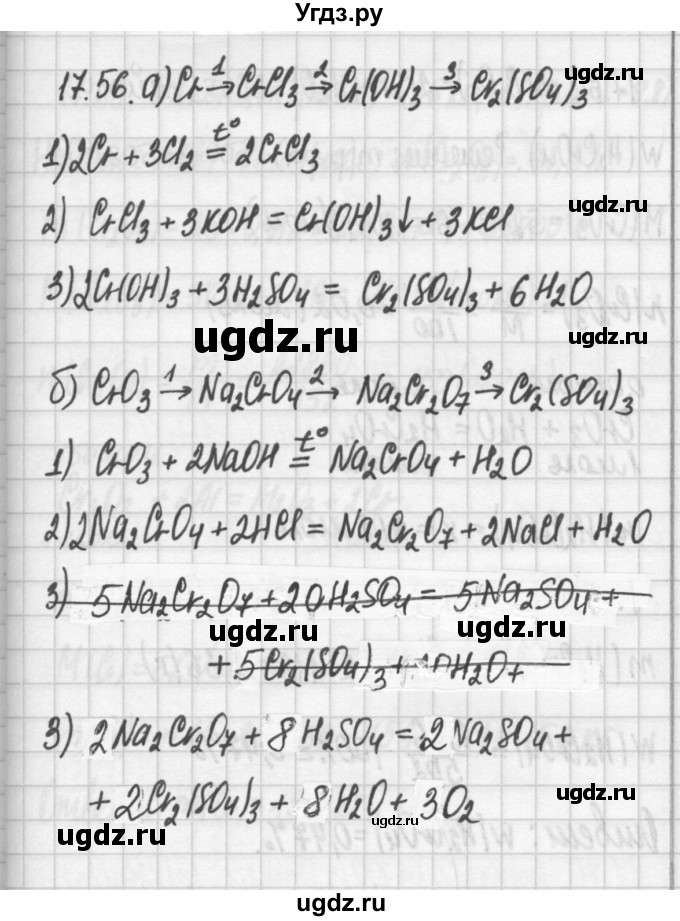 Угдз.ру
17.56. а) Cr →1 CrCl₃ →2 Cr(OH)₃ →3 Cr₂(SO₄)₃
ugdz.ru
1) 2Cr + 3Cl₂ =t° 2CrCl₃
ugdz.ru
2) CrCl₃ + 3KOH = Cr(OH)₃↓ + 3KCl
3) 2Cr(OH)₃ + 3H₂SO₄ = Cr₂(SO₄)₃ + 6H₂O
ugdz.ru
ugdz.ru
б) CrO₃ →1 Na₂CrO₄ →2 Na₂Cr₂O₇ →3 Cr₂(SO₄)₃
1) CrO₃ + 2NaOH =t° Na₂CrO₄ + H₂O
2) 2Na₂CrO₄ + 2HCl = Na₂Cr₂O₇ + 2NaCl + H₂O
3) 5Na₂Cr₂O₇ + 20H₂SO₄ = 5Na₂SO₄ +
ugdz.ru ugdz.ru
+ 5Cr₂(SO₄)₃ + 10H₂O +
3) 2Na₂Cr₂O₇ + 8H₂SO₄ = 2Na₂SO₄ +
ugdz.ru
+ 2Cr₂(SO₄)₃ + 8H₂O + 3O₂
ugdz.ru
ugdz.ru
ugdz.ru
ugdz.ru